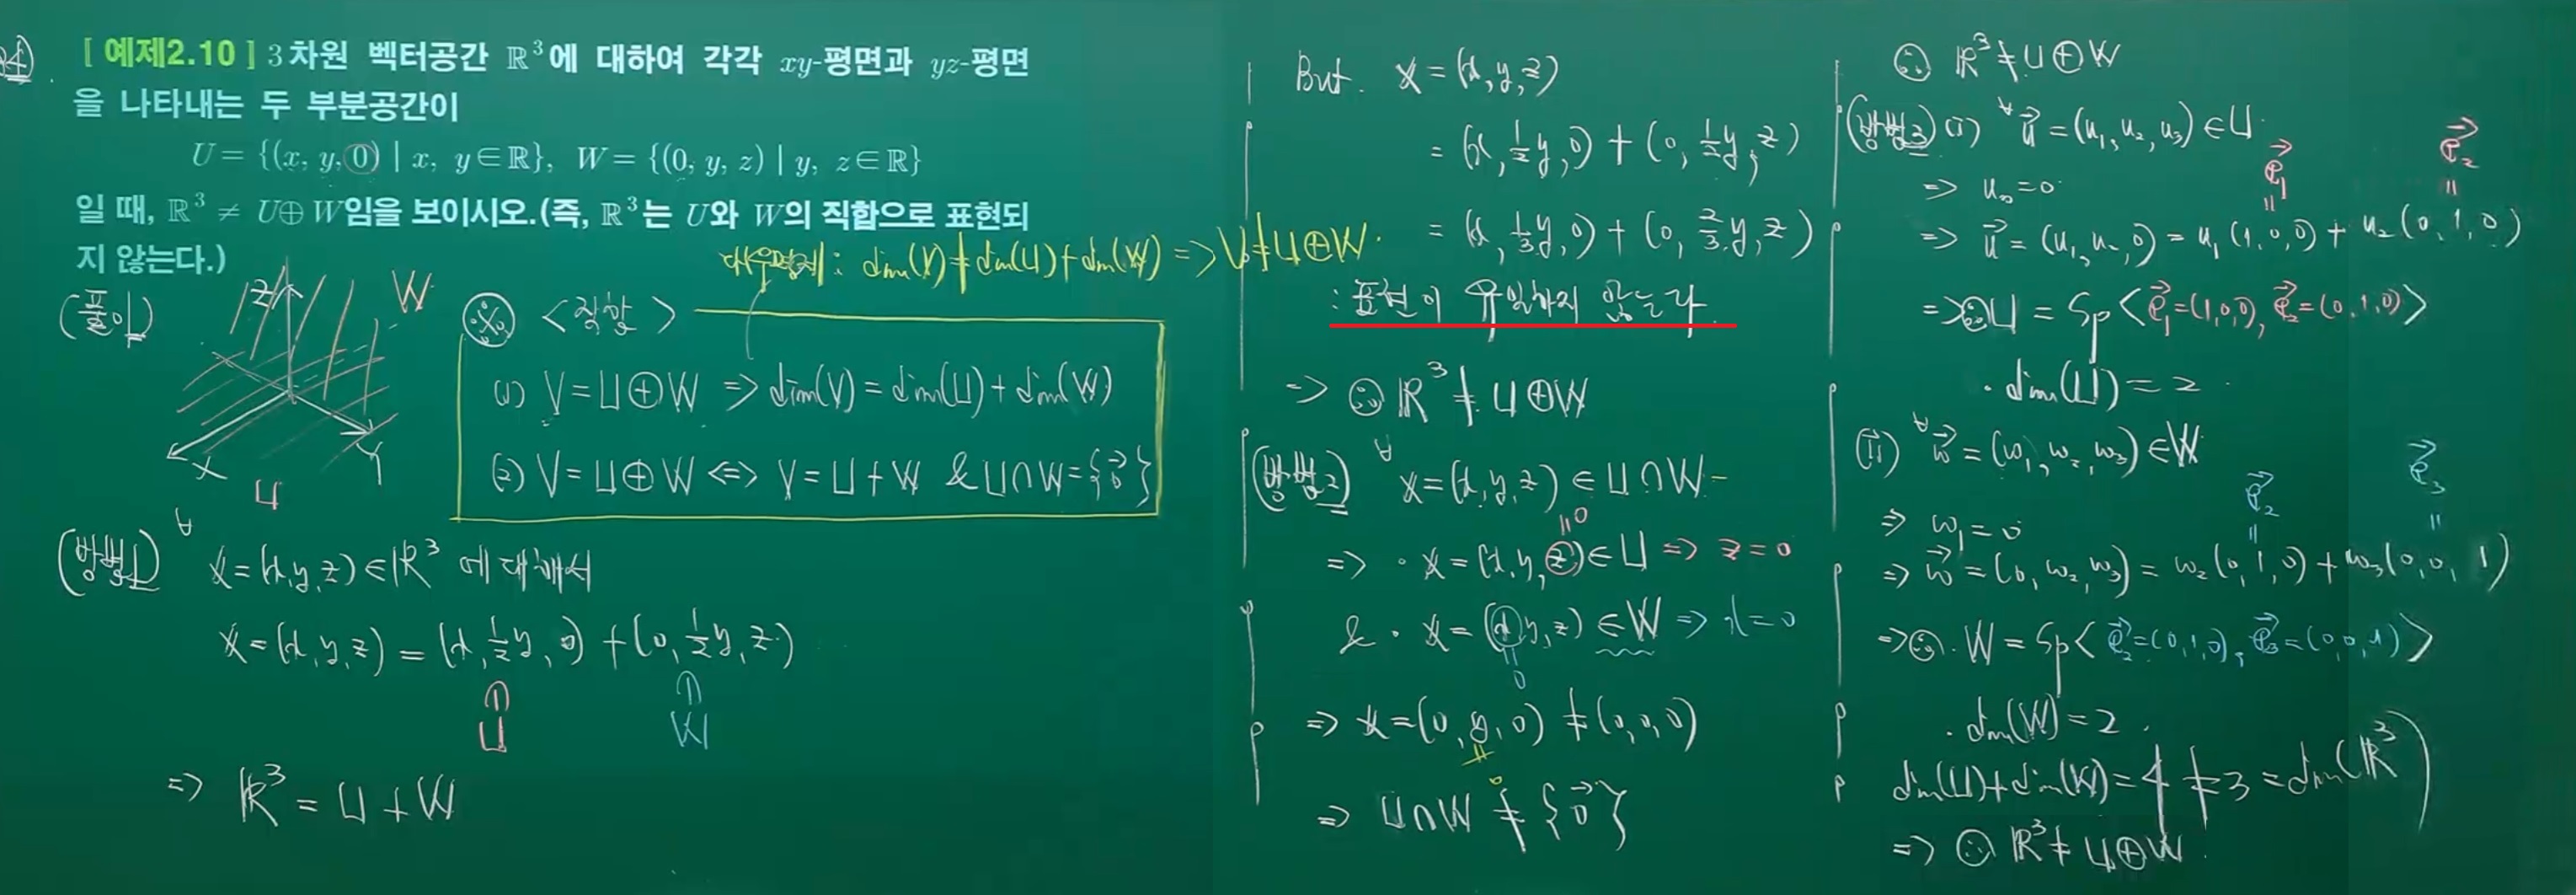 [ 예제2.10 ] 3차원 벡터공간 ℝ³에 대하여 각각 xy-평면과 yz-평면
을 나타내는 두 부분공간이
U = {(x, y, 0) | x, y∈ℝ}, W = {(0, y, z) | y, z∈ℝ}
일 때, ℝ³ ≠ U⊕W임을 보이시오.(즉, ℝ³는 U와 W의 직합으로 표현되
지 않는다.)
대우명제 : dim(V) ≠ dim(U)+dim(W) => V ≠ U⊕W.
(풀이)
Z W
X Y
U
※ <직합>
(1) V=U⊕W => dim(V) = dim(U)+dim(W)
(2) V=U⊕W <=> V=U+W & U∩W={0⃗}
(방법1) ∀x=(x,y,z)∈ℝ³ 에 대해서
x=(x,y,z) = (x, ½y, 0) + (0, ½y, z)
∩ ∩
U W
=> ℝ³ = U+W
But. x = (x,y,z)
= (x, ½y, 0) + (0, ½y, z)
= (x, ⅓y, 0) + (0, ⅔y, z)
: 표현이 유일하지 않는다.
=> ∴ ℝ³ ≠ U⊕W
(방법2) ∀x=(x,y,z) ∈ U∩W
=> · x=(x,y,z)∈U => z=0
=0
& · x=(x,y,z) ∈W => x=0
=0
=> x=(0,y,0) ≠ (0,0,0)
≠0
=> U∩W ≠ {0⃗}
∴ ℝ³ ≠ U⊕W
(방법3) (i) ∀u⃗ = (u₁, u₂, u₃) ∈U.
=> u₃=0
e⃗₁ e⃗₂
=> u⃗ = (u₁, u₂, 0) = u₁(1,0,0) + u₂(0,1,0)
=> ∴ U = Sp<e⃗₁=(1,0,0), e⃗₂=(0,1,0)>
· dim(U) = 2
(ii) ∀w⃗ = (w₁, w₂, w₃) ∈W
=> w₁=0
e⃗₂ e⃗₃
=> w⃗ = (0, w₂, w₃) = w₂(0,1,0) + w₃(0,0,1)
=> ∴ W = Sp<e⃗₂=(0,1,0), e⃗₃=(0,0,1)>
· dim(W) = 2.
dim(U)+dim(W) = 4 ≠ 3 = dim(ℝ³)
=> ∴ ℝ³ ≠ U⊕W.